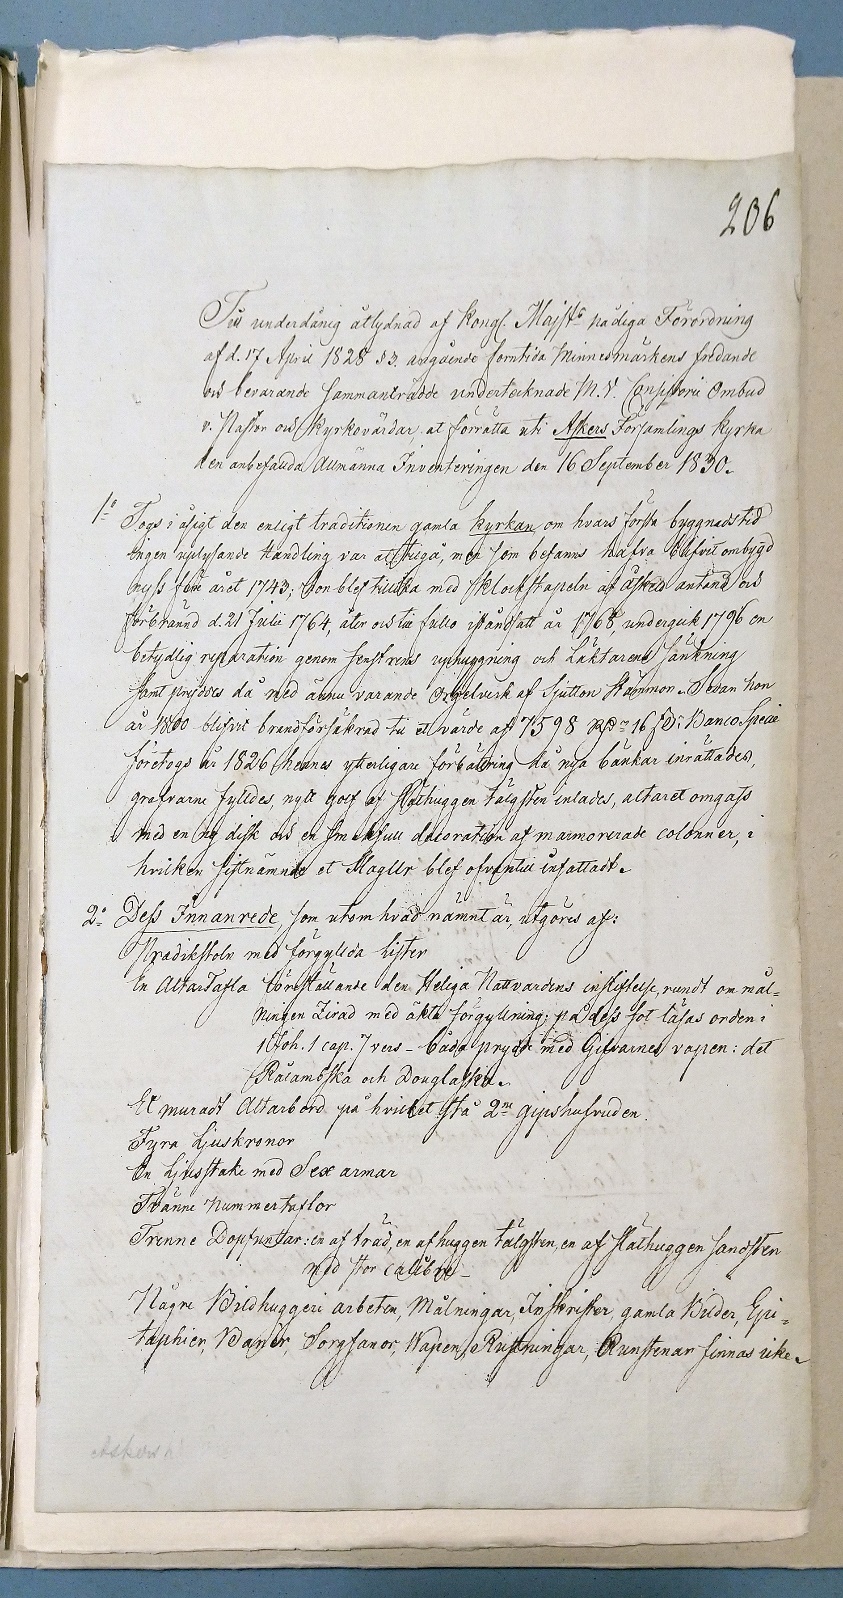 206
Till underdånig åtlydnad af Kongl. Maj:sts nådiga Förordning
af d. 17 April 1828 § 3. angående forntida Minnesmärkens fredande
och bevarande sammanträdde undertecknade M. V. Consistorii Ombud
v. Pastor och Kyrkovärdar, at förrätta uti Askers Församlings kyrka
den anbefallda Allmänna Inventeringen den 16 September 1830.
1:o Togs i åsigt den enligt traditionen gamla kyrkan om hvars första byggnadstid
ingen uplysande Handling var at tilgå, men som befanns hafva blifvit ombygd
nyss före året 1743; Hon blef tillika med Klockstapeln af åskeld antänd och
förbrännd d. 21 Julii 1764, åter och till fullo iståndsatt år 1768, undergick 1796 en
betydlig reparation genom fenstrens uphuggning och Läktarens sänkning
samt pryddes då med ännu varande Orgelverk af Sjutton Stämmor. Sedan hon
år 1800 blifvit brandförsäkrad till et värde af 7598 16 Banco Specie
företogs år 1826 hennes ytterligare förbättring då nya bänkar inrättades,
grafvarne fylldes, nytt golf af släthuggen tälgsten inlades, altaret omgafs
med en ny disk och en smakfull decoration af marmorerade colonner, i
hvilken sistnämnde et Maglir blef ofvantill infattadt.
2:o Dess Innanrede, som utom hvad nämnt är, utgöres af:
Predikstoln med förgyllda Lister
En Altar Tafla föreställande den Heliga Nattvardens instiftelse, rundt om mål-
ningen Zirad med äkta förgyllning; på dess fot läsas orden i
1 Joh. 1 cap. 7 vers - både prydde med Gifvarnes vapen: det
Stråmbska och Douglasska.
Et muradt Altarbord på hvilket stå 2:ne gipshufvuden.
Fyra Ljuskronor
En Ljusstake med Sex armar
Tvänne Nummertaflor
Trenne Dopfuntar: en af träd, en af huggen tälgsten, en af släthuggen sandsten
med stor calibre -
Några Bildhuggeri arbeten, Målningar, Inskrifter, gamla Bilder, Epi-
taphier, Baner, Sorgfanor, Wapen, Rustningar, Runstenar finnas icke.
Askers